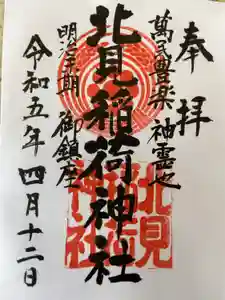 奉拝
萬民豊楽 神霊地
北見稲荷神社
明治末期 御鎮座
令和五年四月十二日
北見
稲荷
神社